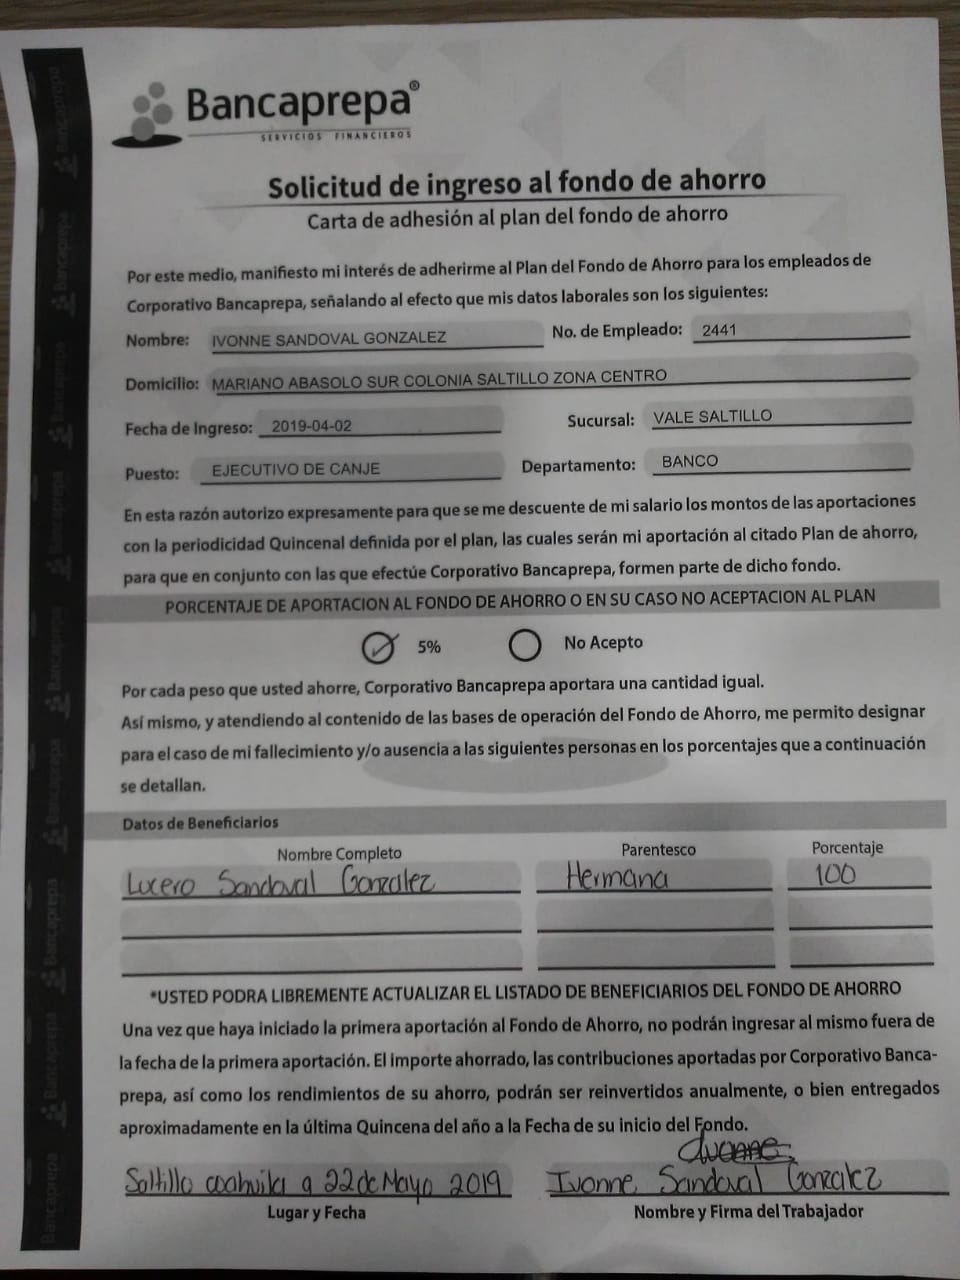 Bancaprepa®
SERVICIOS FINANCIEROS
Solicitud de ingreso al fondo de ahorro
Carta de adhesión al plan del fondo de ahorro
Por este medio, manifiesto mi interés de adherirme al Plan del Fondo de Ahorro para los empleados de
Corporativo Bancaprepa, señalando al efecto que mis datos laborales son los siguientes:
Nombre: IVONNE SANDOVAL GONZALEZ No. de Empleado: 2441
Domicilio: MARIANO ABASOLO SUR COLONIA SALTILLO ZONA CENTRO
Fecha de Ingreso: 2019-04-02 Sucursal: VALE SALTILLO
Puesto: EJECUTIVO DE CANJE Departamento: BANCO
En esta razón autorizo expresamente para que se me descuente de mi salario los montos de las aportaciones
con la periodicidad Quincenal definida por el plan, las cuales serán mi aportación al citado Plan de ahorro,
para que en conjunto con las que efectúe Corporativo Bancaprepa, formen parte de dicho fondo.
PORCENTAJE DE APORTACION AL FONDO DE AHORRO O EN SU CASO NO ACEPTACION AL PLAN
5% No Acepto
Por cada peso que usted ahorre, Corporativo Bancaprepa aportara una cantidad igual.
Así mismo, y atendiendo al contenido de las bases de operación del Fondo de Ahorro, me permito designar
para el caso de mi fallecimiento y/o ausencia a las siguientes personas en los porcentajes que a continuación
se detallan.
Datos de Beneficiarios
Nombre Completo Parentesco Porcentaje
Lucero Sandoval Gonzalez Hermana 100
*USTED PODRA LIBREMENTE ACTUALIZAR EL LISTADO DE BENEFICIARIOS DEL FONDO DE AHORRO
Una vez que haya iniciado la primera aportación al Fondo de Ahorro, no podrán ingresar al mismo fuera de
la fecha de la primera aportación. El importe ahorrado, las contribuciones aportadas por Corporativo Banca-
prepa, así como los rendimientos de su ahorro, podrán ser reinvertidos anualmente, o bien entregados
aproximadamente en la última Quincena del año a la Fecha de su inicio del Fondo.
Ivonne
Saltillo coahuila a 22 de Mayo 2019 Ivonne Sandoval Gonzalez
Lugar y Fecha Nombre y Firma del Trabajador